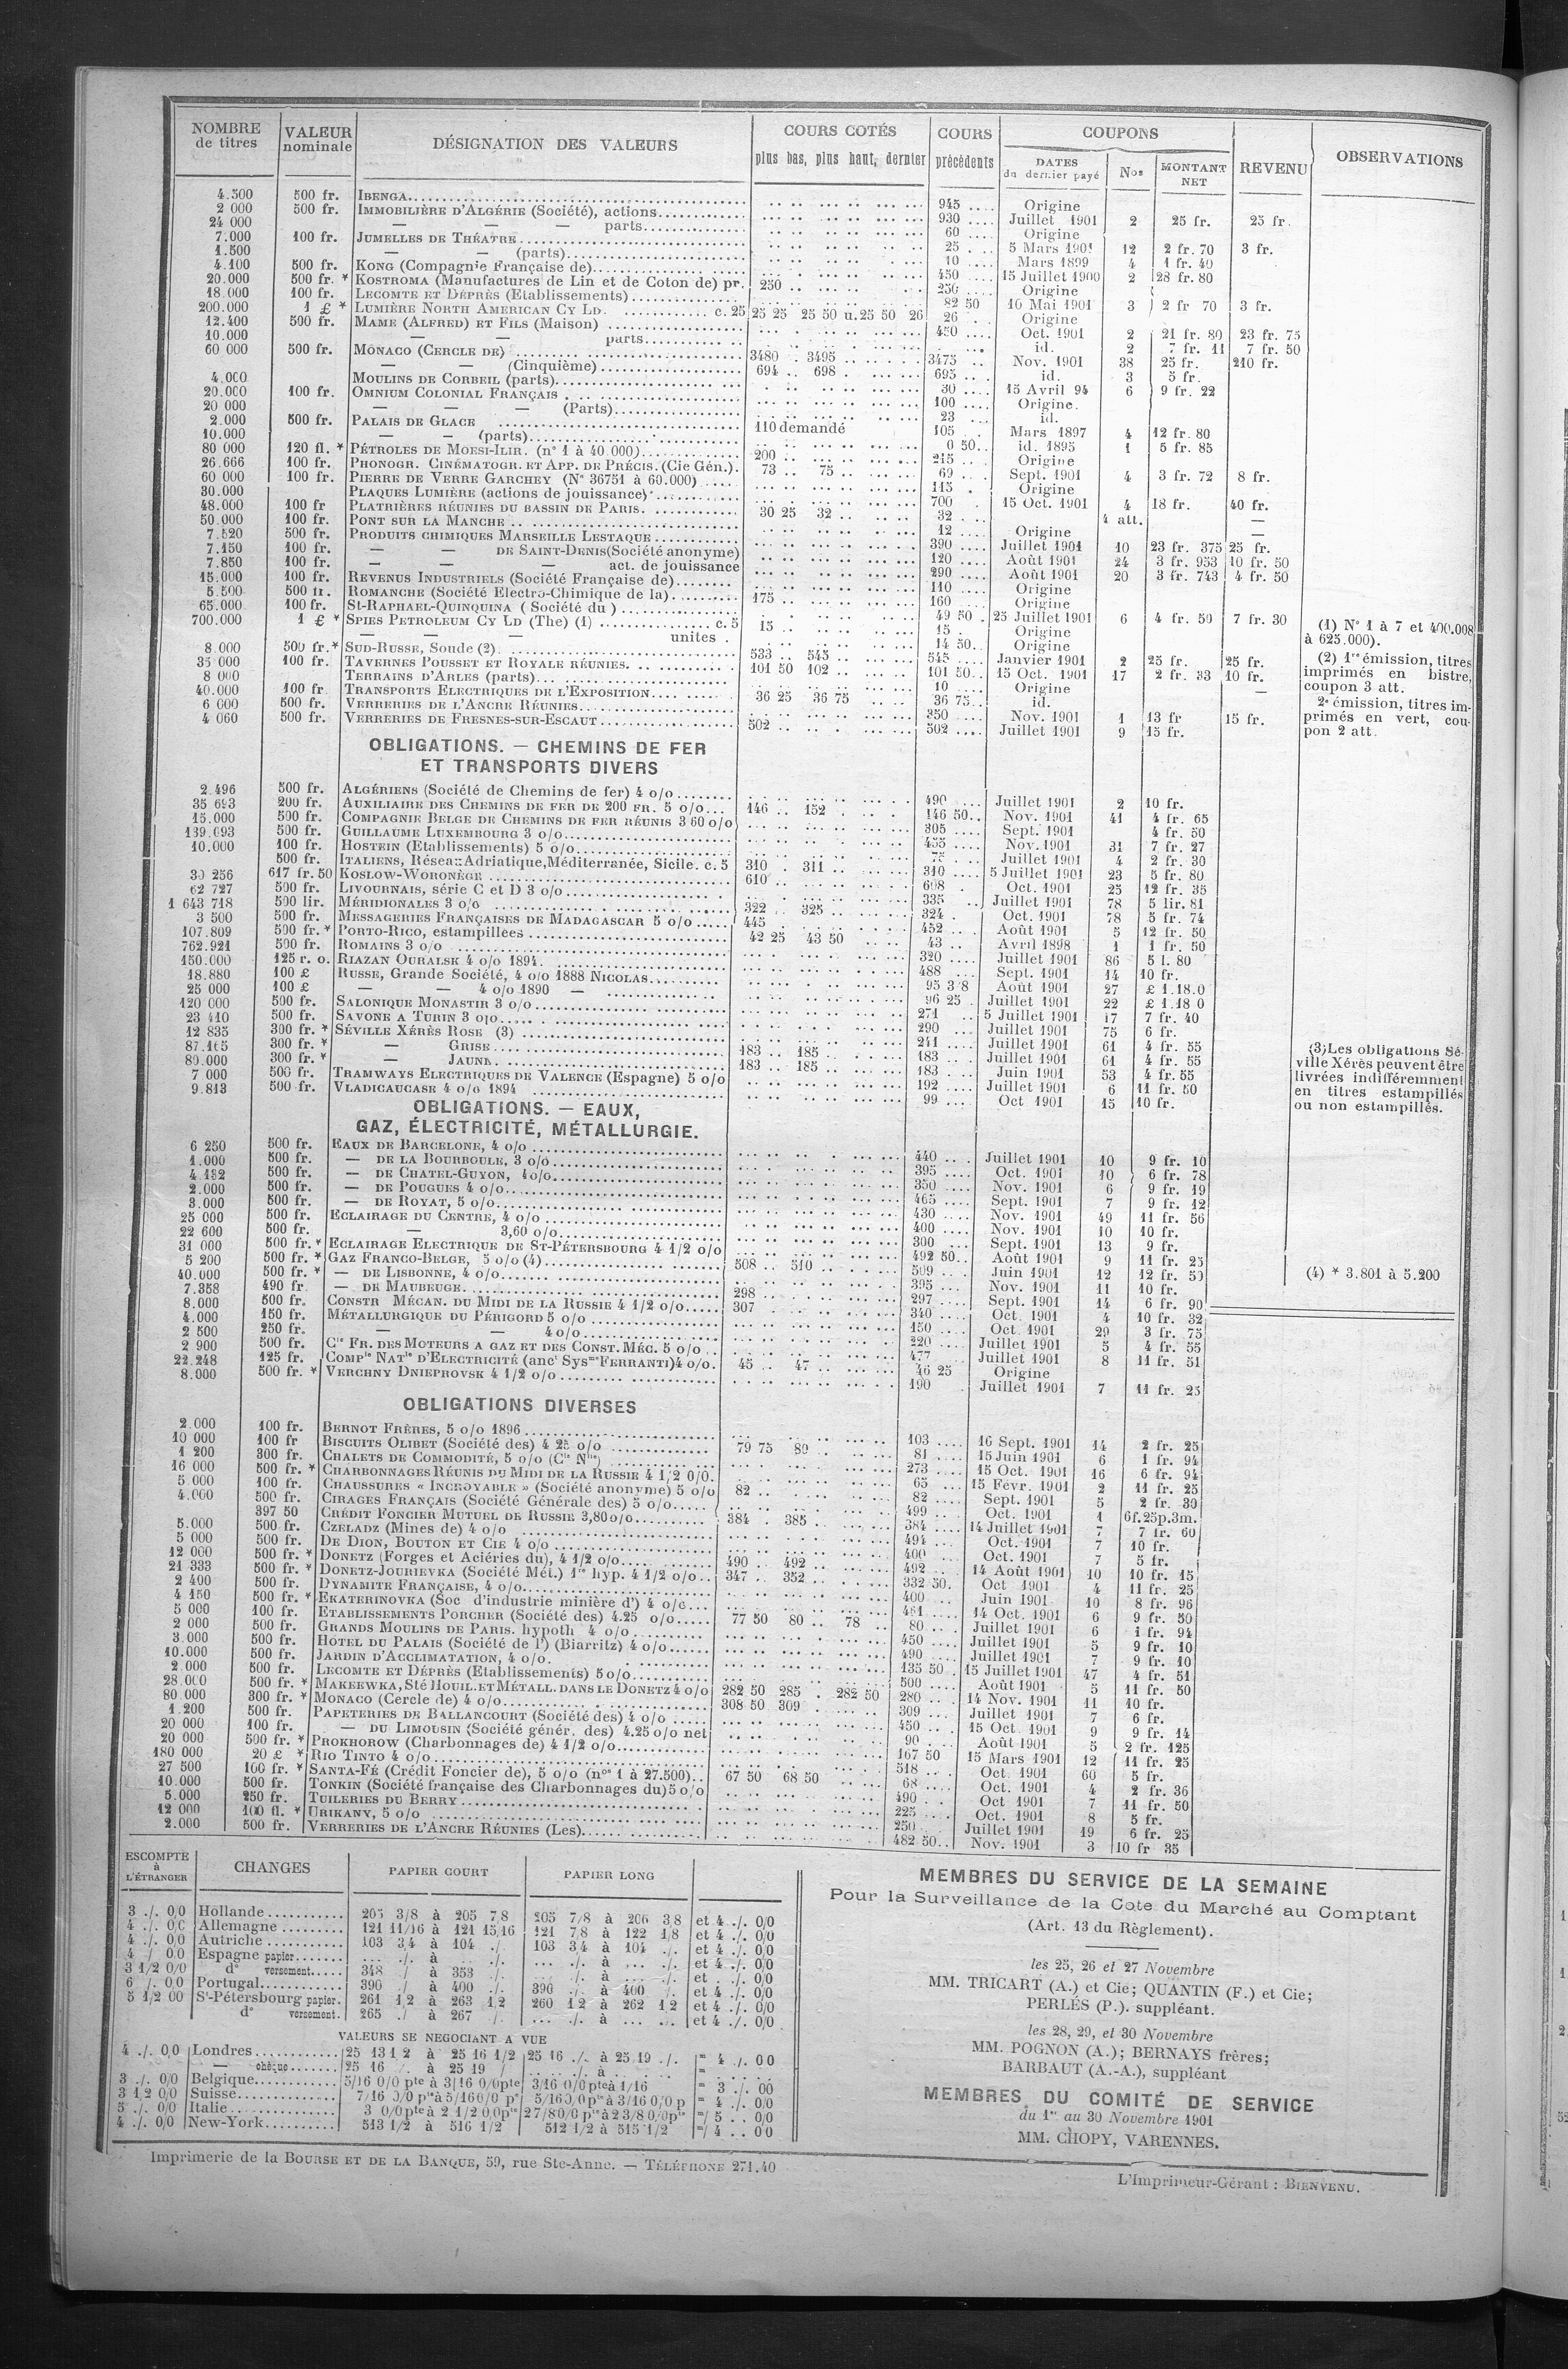 NOMBRE de titres | VALEUR nominale | DÉSIGNATION DES VALEURS | COURS COTÉS plus bas, plus haut, dernier | COURS précédents | COUPONS DATES du dernier payé | Nos | MONTANT NET | REVENU | OBSERVATIONS
4.500 500 fr. IBENGA 945 Origine
2 000 500 fr. IMMOBILIÈRE D'ALGÉRIE (Société), actions 930 Juillet 1901 2 25 fr. 25 fr.
24 000 — — — parts 60 Origine
7.000 100 fr. JUMELLES DE THÉATRE 25 5 Mars 1901 12 2 fr. 70 3 fr.
1.500 — — (parts) 10 Mars 1899 4 1 fr. 40
4.100 500 fr. KONG (Compagnie Française de) 450 15 Juillet 1900 2 28 fr. 80
20.000 500 fr. * KOSTROMA (Manufactures de Lin et de Coton de) pr. 250 250 Origine
18.000 100 fr. LECOMTE ET DÉPRÈS (Etablissements) 82 50 16 Mai 1901 3 2 fr 70 3 fr.
200.000 1 £ * LUMIÈRE NORTH AMERICAN CY LD. c. 25 25 25 25 50 u. 25 50 26 26 Origine
12.400 500 fr. MAME (ALFRED) ET FILS (Maison) 450 Oct. 1901 2 21 fr. 80 23 fr. 75
10.000 — — parts id. 2 7 fr. 11 7 fr. 50
60 000 500 fr. MONACO (CERCLE DE) 3480 3495 3475 Nov. 1901 38 25 fr. 210 fr.
— — (Cinquième) 694 698 695 id. 3 5 fr.
4.000 MOULINS DE CORBEIL (parts) 30 15 Avril 94 6 9 fr. 22
20.000 100 fr. OMNIUM COLONIAL FRANÇAIS 100 Origine.
20 000 — — — (Parts) 23 id.
2.000 500 fr. PALAIS DE GLACE 110 demandé 105 Mars 1897 4 12 fr. 80
10.000 — — (parts) 0 50 id. 1895 1 5 fr. 85
80 000 120 fl. * PÉTROLES DE MOESI-ILIR. (n° 1 à 40.000) 200 215 Origine
26.666 100 fr. PHONOGR. CINÉMATOGR. ET APP. DE PRÉCIS. (Cie Gén.) 73 75 69 Sept. 1901 4 3 fr. 72 8 fr.
60 000 100 fr. PIERRE DE VERRE GARCHEY (N° 36751 à 60.000) 115 Origine
30.000 PLAQUES LUMIÈRE (actions de jouissance) 700 15 Oct. 1901 4 18 fr. 40 fr.
48.000 100 fr PLATRIÈRES RÉUNIES DU BASSIN DE PARIS. 30 25 32 32 4 att. —
50.000 100 fr. PONT SUR LA MANCHE 12 Origine —
7.520 500 fr. PRODUITS CHIMIQUES MARSEILLE LESTAQUE 390 Juillet 1901 10 23 fr. 375 25 fr.
7.150 100 fr. — — DE SAINT-DENIS (Société anonyme) 120 Août 1901 24 3 fr. 953 10 fr. 50
7.850 100 fr. — — — act. de jouissance 290 Août 1901 20 3 fr. 743 4 fr. 50
15.000 100 fr. REVENUS INDUSTRIELS (Société Française de) 110 Origine
5.500 500 fr. ROMANCHE (Société Electro-Chimique de la) 175 160 Origine
65.000 100 fr. St-RAPHAEL-QUINQUINA (Société du) 49 50 25 Juillet 1901 6 4 fr. 50 7 fr. 30
700.000 1 £ * SPIES PETROLEUM CY LD (The) (1) c. 5 15 15 Origine
— — — unites 14 50 Origine
8.000 500 fr. * SUD-RUSSE, Soude (2) 533 545 545 Janvier 1901 2 25 fr. 25 fr.
35 000 100 fr. TAVERNES POUSSET ET ROYALE RÉUNIES. 101 50 102 101 50 15 Oct. 1901 17 2 fr. 33 10 fr.
8 000 TERRAINS D'ARLES (parts) 10 Origine —
40.000 100 fr. TRANSPORTS ELECTRIQUES DE L'EXPOSITION 36 25 36 75 36 75 id.
6 000 500 fr. VERRERIES DE L'ANCRE RÉUNIES 350 Nov. 1901 1 13 fr 15 fr.
4 060 500 fr. VERRERIES DE FRESNES-SUR-ESCAUT 502 502 Juillet 1901 9 15 fr.
(1) N° 1 à 7 et 400.008
à 625.000).
(2) 1re émission, titres
imprimés en bistre,
coupon 3 att.
2e émission, titres im-
primés en vert, cou-
pon 2 att.
OBLIGATIONS. — CHEMINS DE FER
ET TRANSPORTS DIVERS
2.496 500 fr. ALGÉRIENS (Société de Chemins de fer) 4 o/o 490 Juillet 1901 2 10 fr.
35 693 200 fr. AUXILIAIRE DES CHEMINS DE FER DE 200 FR. 5 o/o 146 152 146 50 Nov. 1901 41 4 fr. 65
15.000 500 fr. COMPAGNIE BELGE DE CHEMINS DE FER RÉUNIS 3 60 o/o 305 Sept. 1901 4 fr. 50
139.693 500 fr. GUILLAUME LUXEMBOURG 3 o/o 455 Nov. 1901 31 7 fr. 27
10.000 100 fr. HOSTEIN (Etablissements) 5 o/o 75 Juillet 1901 4 2 fr. 30
500 fr. ITALIENS, Réseaux Adriatique, Méditerranée, Sicile. c. 5 310 311 310 5 Juillet 1901 23 5 fr. 80
30 256 617 fr. 50 KOSLOW-WORONÈGE 610 608 Oct. 1901 25 12 fr. 35
62 727 500 fr. LIVOURNAIS, série C et D 3 o/o 335 Juillet 1901 78 5 lir. 81
1 643 718 500 lir. MÉRIDIONALES 3 o/o 322 325 324 Oct. 1901 78 5 fr. 74
3 500 500 fr. MESSAGERIES FRANÇAISES DE MADAGASCAR 5 o/o 445 452 Août 1901 5 12 fr. 50
107.809 500 fr. * PORTO-RICO, estampillees 42 25 43 50 43 Avril 1898 1 1 fr. 50
762.921 500 fr. ROMAINS 3 o/o 320 Juillet 1901 86 5 l. 80
150.000 125 r. o. RIAZAN OURALSK 4 o/o 1894. 488 Sept. 1901 14 10 fr.
18.880 100 £ RUSSE, Grande Société, 4 o/o 1888 NICOLAS 95 3 8 Août 1901 27 £ 1.18.0
25 000 100 £ — — 4 o/o 1890 — 96 25 Juillet 1901 22 £ 1.18 0
120 000 500 fr. SALONIQUE MONASTIR 3 o/o 271 5 Juillet 1901 17 7 fr. 40
23 410 500 fr. SAVONE A TURIN 3 o/o 290 Juillet 1901 75 6 fr.
12 835 300 fr. * SÉVILLE XÉRÈS ROSE (3) 241 Juillet 1901 61 4 fr. 55
87.165 300 fr. * — GRISE 183 185 183 Juillet 1901 61 4 fr. 55
89.000 300 fr. * — JAUNE 183 185 183 Juin 1901 53 4 fr. 55
7 000 500 fr. TRAMWAYS ELECTRIQUES DE VALENCE (Espagne) 5 o/o 192 Juillet 1901 6 11 fr. 50
9.813 500 fr. VLADICAUCASE 4 o/o 1894 99 Oct 1901 15 10 fr.
(3) Les obligations Sé-
ville Xérès peuvent être
livrées indifféremment
en titres estampillés
ou non estampillés.
OBLIGATIONS. — EAUX,
GAZ, ÉLECTRICITÉ, MÉTALLURGIE.
6 250 500 fr. EAUX DE BARCELONE, 4 o/o 440 Juillet 1901 10 9 fr. 10
1.000 500 fr. — DE LA BOURBOULE, 3 o/o 395 Oct. 1901 10 6 fr. 78
4.132 500 fr. — DE CHATEL-GUYON, 4 o/o 350 Nov. 1901 6 9 fr. 19
2.000 500 fr. — DE POUGUES 4 o/o 465 Sept. 1901 7 9 fr. 12
3.000 500 fr. — DE ROYAT, 5 o/o 430 Nov. 1901 49 11 fr. 56
25 000 500 fr. ECLAIRAGE DU CENTRE, 4 o/o 400 Nov. 1901 10 10 fr.
22 600 500 fr. — 3,60 o/o 300 Sept. 1901 13 9 fr.
31 000 500 fr. * ECLAIRAGE ELECTRIQUE DE ST-PÉTERSBOURG 4 1/2 o/o 492 50 Août 1901 9 11 fr. 25
5 200 500 fr. * GAZ FRANCO-BELGE, 5 o/o (4) 508 510 509 Juin 1901 12 12 fr. 50
40.000 500 fr. * — DE LISBONNE, 4 o/o 395 Nov. 1901 11 10 fr.
7.358 490 fr. — DE MAUBEUGE 298 297 Sept. 1901 14 6 fr. 90
8.000 500 fr. CONSTR MÉCAN. DU MIDI DE LA RUSSIE 4 1/2 o/o 307 340 Oct. 1901 4 10 fr. 32
4.000 150 fr. MÉTALLURGIQUE DU PÉRIGORD 5 o/o 150 Oct. 1901 29 3 fr. 75
2 500 250 fr. — — 4 o/o 220 Juillet 1901 5 4 fr. 55
2 900 500 fr. Cie FR. DES MOTEURS A GAZ ET DES CONST. MÉC. 5 o/o 477 Juillet 1901 8 11 fr. 51
22.248 125 fr. Compie NATle D'ELECTRICITÉ (anct Sysme FERRANTI) 4 o/o. 45 47 46 25 Origine
8.000 500 fr. * VERCHNY DNIEPROVSK 4 1/2 o/o 190 Juillet 1901 7 11 fr. 25
(4) * 3.801 à 5.200
OBLIGATIONS DIVERSES
2.000 100 fr. BERNOT FRÈRES, 5 o/o 1896 103 16 Sept. 1901 14 2 fr. 25
10 000 100 fr BISCUITS OLIBET (Société des) 4 25 o/o 79 75 80 81 15 Juin 1901 6 1 fr. 94
1 200 300 fr. CHALETS DE COMMODITÉ, 5 o/o (Cie Nlle) 273 15 Oct. 1901 16 6 fr. 94
16 000 500 fr. * CHARBONNAGES RÉUNIS DU MIDI DE LA RUSSIE 4 1/2 0/0. 65 15 Févr. 1901 2 11 fr. 25
5.000 100 fr. CHAUSSURES « INCROYABLE » (Société anonyme) 5 o/o 82 82 Sept. 1901 5 2 fr. 39
4.000 500 fr. CIRAGES FRANÇAIS (Société Générale des) 5 o/o 499 Oct. 1901 1 6f.25p.3m.
397 50 CRÉDIT FONCIER MUTUEL DE RUSSIE 3,80 o/o 384 385 384 14 Juillet 1901 7 7 fr. 60
5.000 500 fr. CZELADZ (Mines de) 4 o/o 494 Oct. 1901 7 10 fr.
5 000 500 fr. DE DION, BOUTON ET CIE 4 o/o 400 Oct. 1901 7 5 fr.
12 000 500 fr. * DONETZ (Forges et Aciéries du), 4 1/2 o/o 490 492 492 14 Août 1901 10 10 fr. 15
21 333 500 fr. * DONETZ-JOURIEVKA (Société Mét.) 1re hyp. 4 1/2 o/o 347 352 332 50. Oct 1901 4 11 fr. 25
2 400 500 fr. DYNAMITE FRANÇAISE, 4 o/o 400 Juin 1901 10 8 fr. 96
4 150 500 fr. * EKATERINOVKA (Soc d'industrie minière d') 4 o/o 461 14 Oct. 1901 6 9 fr. 50
5 000 100 fr. ETABLISSEMENTS PORCHER (Société des) 4.25 o/o 77 50 80 78 80 Juillet 1901 6 1 fr. 94
2 000 500 fr. GRANDS MOULINS DE PARIS. hypoth 4 o/o 450 Juillet 1901 5 9 fr. 10
3.000 500 fr. HOTEL DU PALAIS (Société de l') (Biarritz) 4 o/o 490 Juillet 1901 7 9 fr. 10
10.000 500 fr. JARDIN D'ACCLIMATATION, 4 o/o. 135 50 15 Juillet 1901 47 4 fr. 51
2.000 500 fr. LECOMTE ET DÉPRÈS (Etablissements) 5 o/o 500 Août 1901 5 11 fr. 50
28.000 500 fr. * MAKEEWKA, Sté HOUIL. ET MÉTALL. DANS LE DONETZ 4 o/o 282 50 285 282 50 280 14 Nov. 1901 11 10 fr.
80.000 300 fr. * MONACO (Cercle de) 4 o/o 308 50 309 309 Juillet 1901 7 6 fr.
1.200 500 fr. PAPETERIES DE BALLANCOURT (Société des) 4 o/o 450 15 Oct 1901 9 9 fr. 14
20 000 100 fr. — DU LIMOUSIN (Société génér. des) 4.25 o/o net 90 Août 1901 5 2 fr. 125
20 000 500 fr. * PROKHOROW (Charbonnages de) 4 1/2 o/o 167 50 15 Mars 1901 12 11 fr. 25
180 000 20 £ * RIO TINTO 4 o/o 518 Oct. 1901 60 5 fr.
27 500 100 fr. * SANTA-FÉ (Crédit Foncier de), 5 o/o (nos 1 à 27.500) 67 50 68 50 68 Oct. 1901 4 2 fr. 36
10.000 500 fr. TONKIN (Société française des Charbonnages du) 5 o/o 490 Oct 1901 7 11 fr. 50
5.000 250 fr. TUILERIES DU BERRY 225 Oct. 1901 8 5 fr.
12 000 100 fl. * URIKANY, 5 o/o 250 Juillet 1901 19 6 fr. 25
2.000 500 fr. VERRERIES DE L'ANCRE RÉUNIES (Les) 482 50 Nov. 1901 3 10 fr 35
ESCOMPTE à L'ÉTRANGER | CHANGES | PAPIER COURT | PAPIER LONG
3 ./. 0/0 Hollande 205 3/8 à 205 7/8 205 7/8 à 206 3 8 et 4 ./. 0/0
4 ./. 0/0 Allemagne 121 11/16 à 121 15/16 121 7/8 à 122 1/8 et 4 ./. 0/0
4 ./. 0/0 Autriche 103 3/4 à 104 ./. 103 3/4 à 104 ./. et 4 ./. 0/0
4 / 0 0 Espagne papier ... ./. à ... ./. à ... ./. et 4 ./. 0/0
3 1/2 0/0 d° versement 348 ./ à 353 ./. ... ./. à ... ./. et . ./. 0/0
6 ./. 0/0 Portugal 390 ./ à 400 ./. 390 ./. à 400 ./. et 4 ./. 0/0
5 1/2 00 St-Pétersbourg papier. 261 1/2 à 263 1/2 260 1 2 à 262 1 2 et 4 ./. 0/0
d° versement. 265 ./ à 267 /. ... ./. à ... ./. et 4 ./. 0/0
VALEURS SE NEGOCIANT A VUE
4 ./. 0/0 Londres 25 13 1 2 à 25 16 1/2 25 16 ./. à 25 19 ./. = 4 ./. 0 0
— chèque 25 16 /. à 25 19 /
3 ./. 0/0 Belgique 5/16 0/0 pte à 3/16 0/0 pte 3/16 0/0 pte à 1/16 = 3 ./. 00
3 1/2 0/0 Suisse 7/16 0/0 pte à 5/16 0/0 pe 5/16 0,0 pte à 3/16 0/0 p = 4 ./. 0/0
5 ./. 0/0 Italie 3 0/0 pte à 2 1/2 0 0 pte 2 7/8 0/0 pte à 2 3/8 0/0 pte =/ 5 . . 0/0
4 ./. 0/0 New-York 513 1/2 à 516 1/2 512 1/2 à 515 1/2 =/ 4 . . 0 0
MEMBRES DU SERVICE DE LA SEMAINE
Pour la Surveillance de la Cote du Marché au Comptant
(Art. 13 du Règlement).
les 25, 26 et 27 Novembre
MM. TRICART (A.) et Cie; QUANTIN (F.) et Cie;
PERLÈS (P.). suppléant.
les 28, 29, et 30 Novembre
MM. POGNON (A.); BERNAYS frères;
BARBAUT (A.-A.), suppléant
MEMBRES DU COMITÉ DE SERVICE
du 1er au 30 Novembre 1901
MM. CHOPY, VARENNES.
Imprimerie de la BOURSE ET DE LA BANQUE, 59, rue Ste-Anne. — TÉLÉPHONE 271.40
L'Imprimeur-Gérant : BIENVENU.